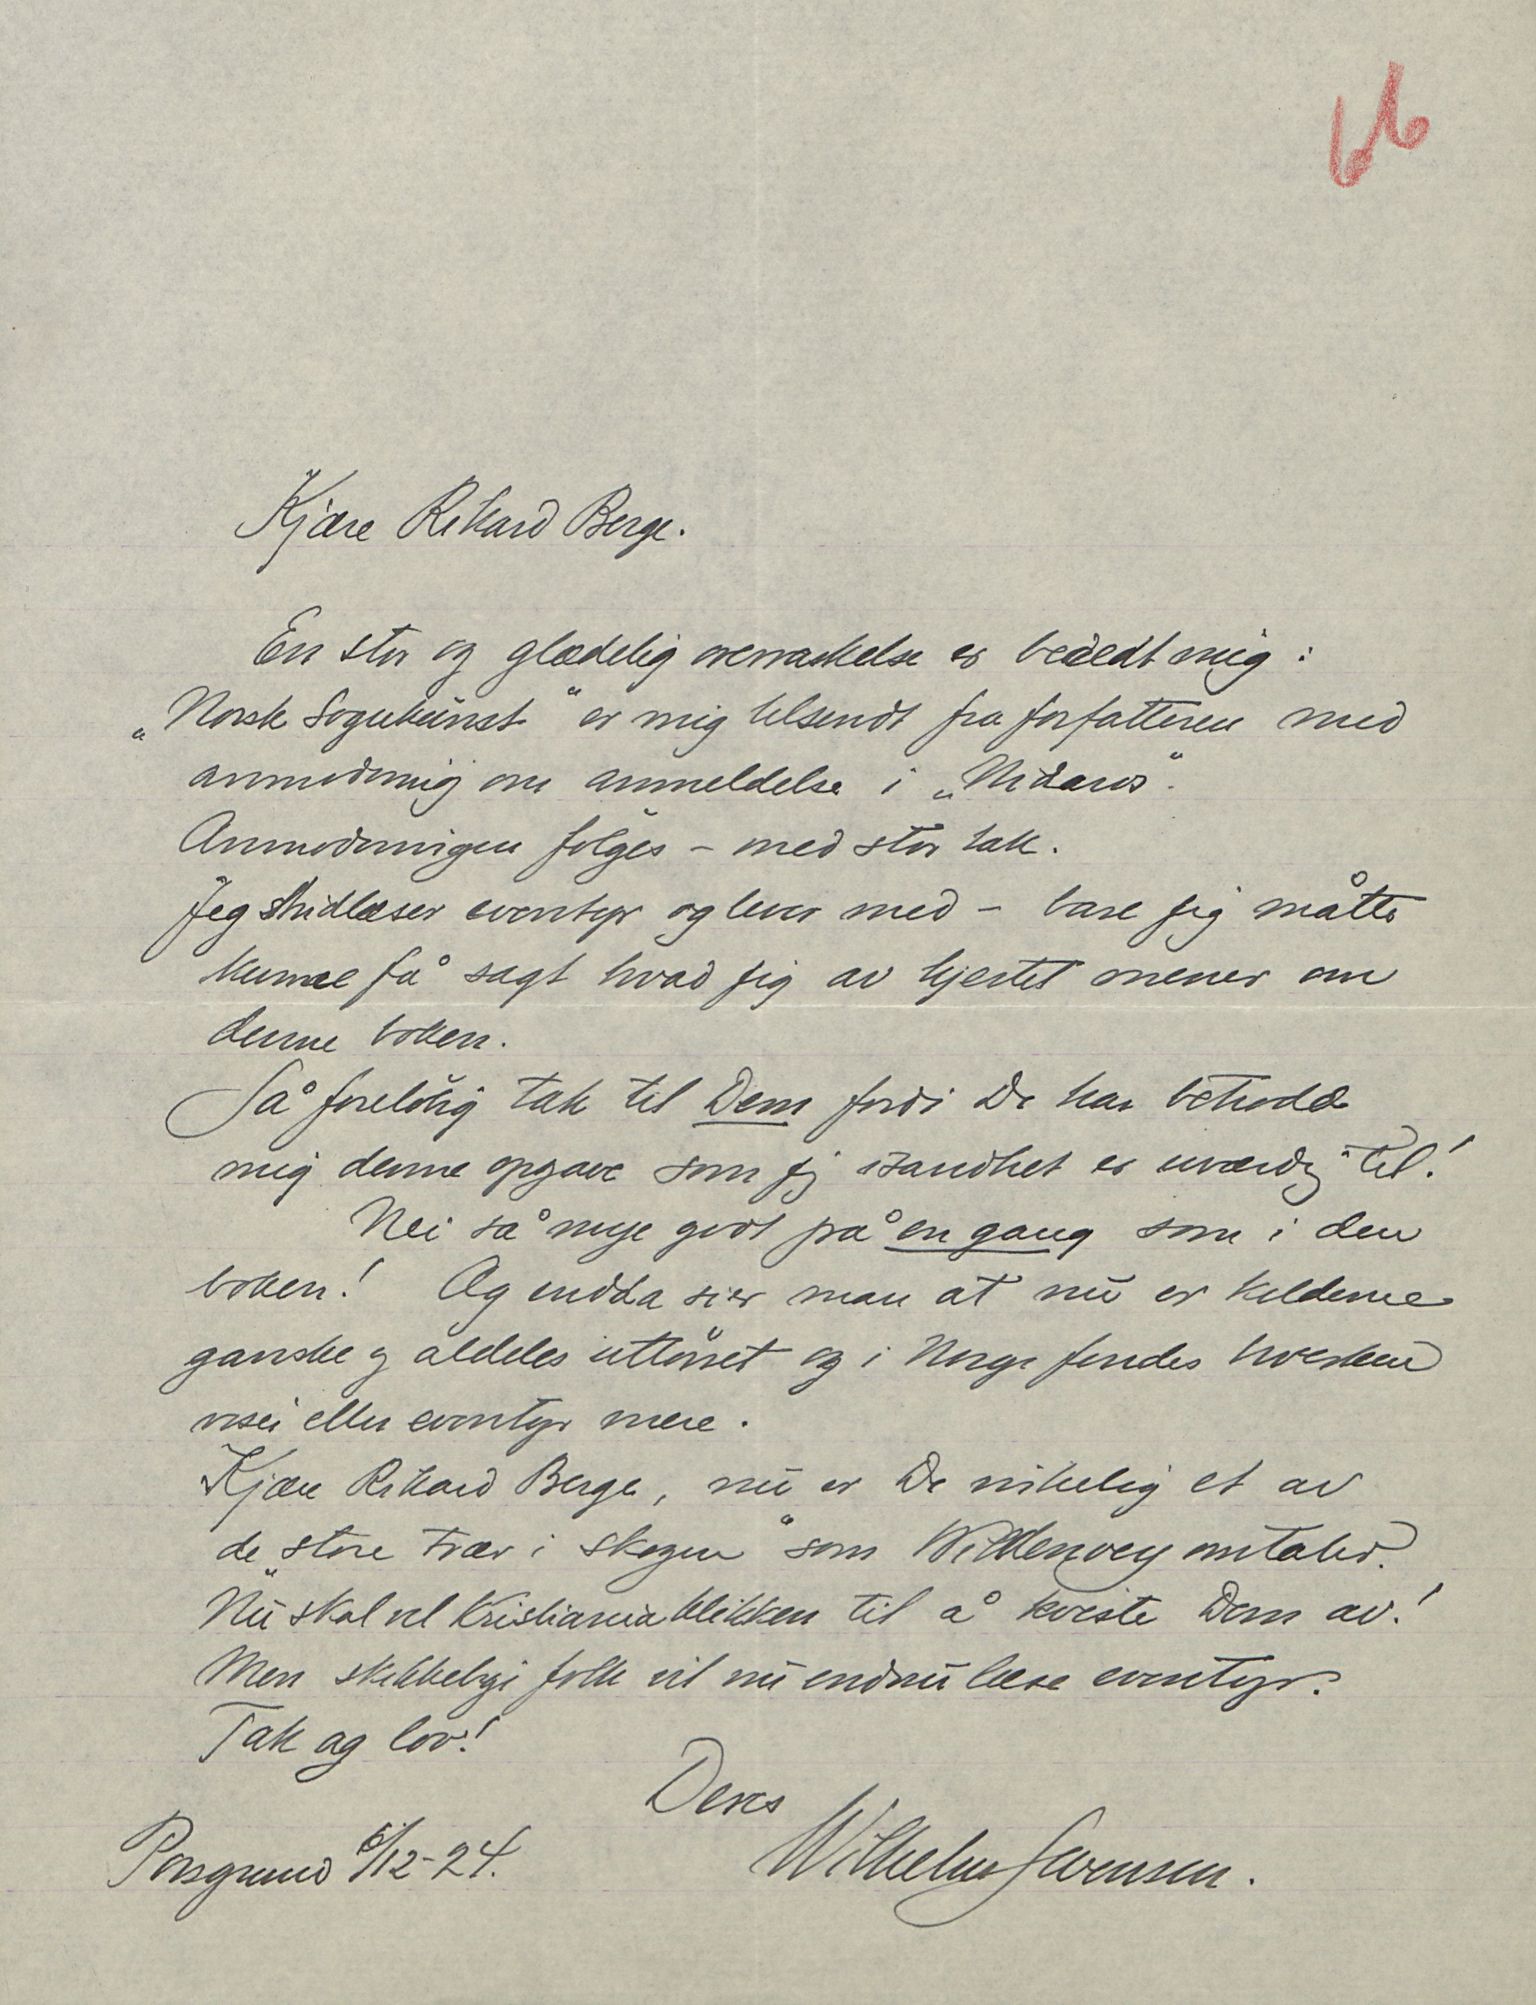 66
Kjære Rikard Berge.
En stor og glædelig overraskelse er beredt mig:
„Norsk Sogukunst" er mig tilsendt fra forfatteren med
anmodning om anmeldelse i „Nidaros".
Anmodningen følges – med stor tak.
Jeg studlæser eventyr og lever med – bare jeg måtte
kunne få sagt hvad jeg av hjertet mener om
denne boken.
Så foreløbig tak til Dem fordi De har betrodd
mig denne opgave som jeg isandhet er uværdig til!
Nei så mye godt på en gang som i den
boken! Og endda sier man at nu er kilderne
ganske og aldeles uttørret og i Norge findes hverken
viser eller eventyr mere.
Kjære Rikard Berge, nu er De virkelig et av
de „store trær i skogen" som Wildenvey omtaler.
Nu skal vel Kristianiaklikken til å kviste Dem av!
Men skikkelige folk vil nu endnu læse eventyr.
Tak og lov!
Deres
Porsgrund 6/12-24.
Wilhelm Svensen.